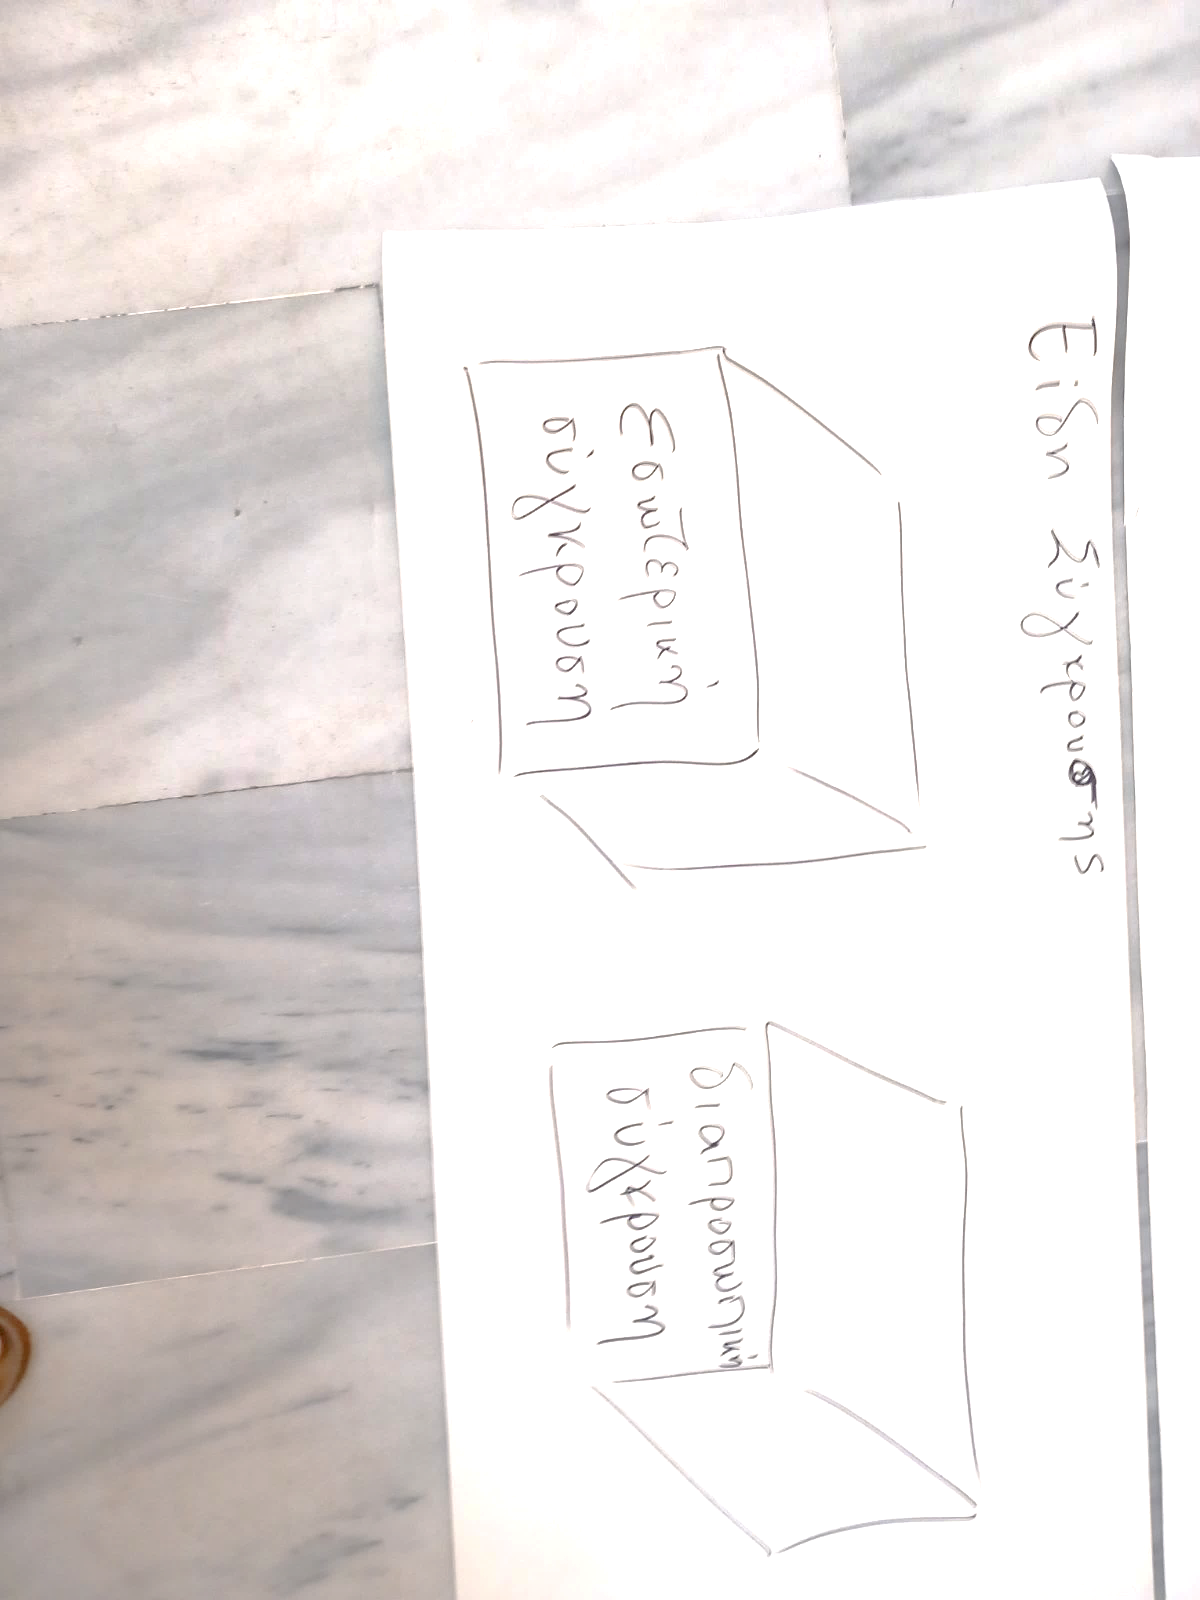 Είδη Σύγκρουσης
Εσωτερική
σύγκρουση
διαπροσωπική
σύγκρουση